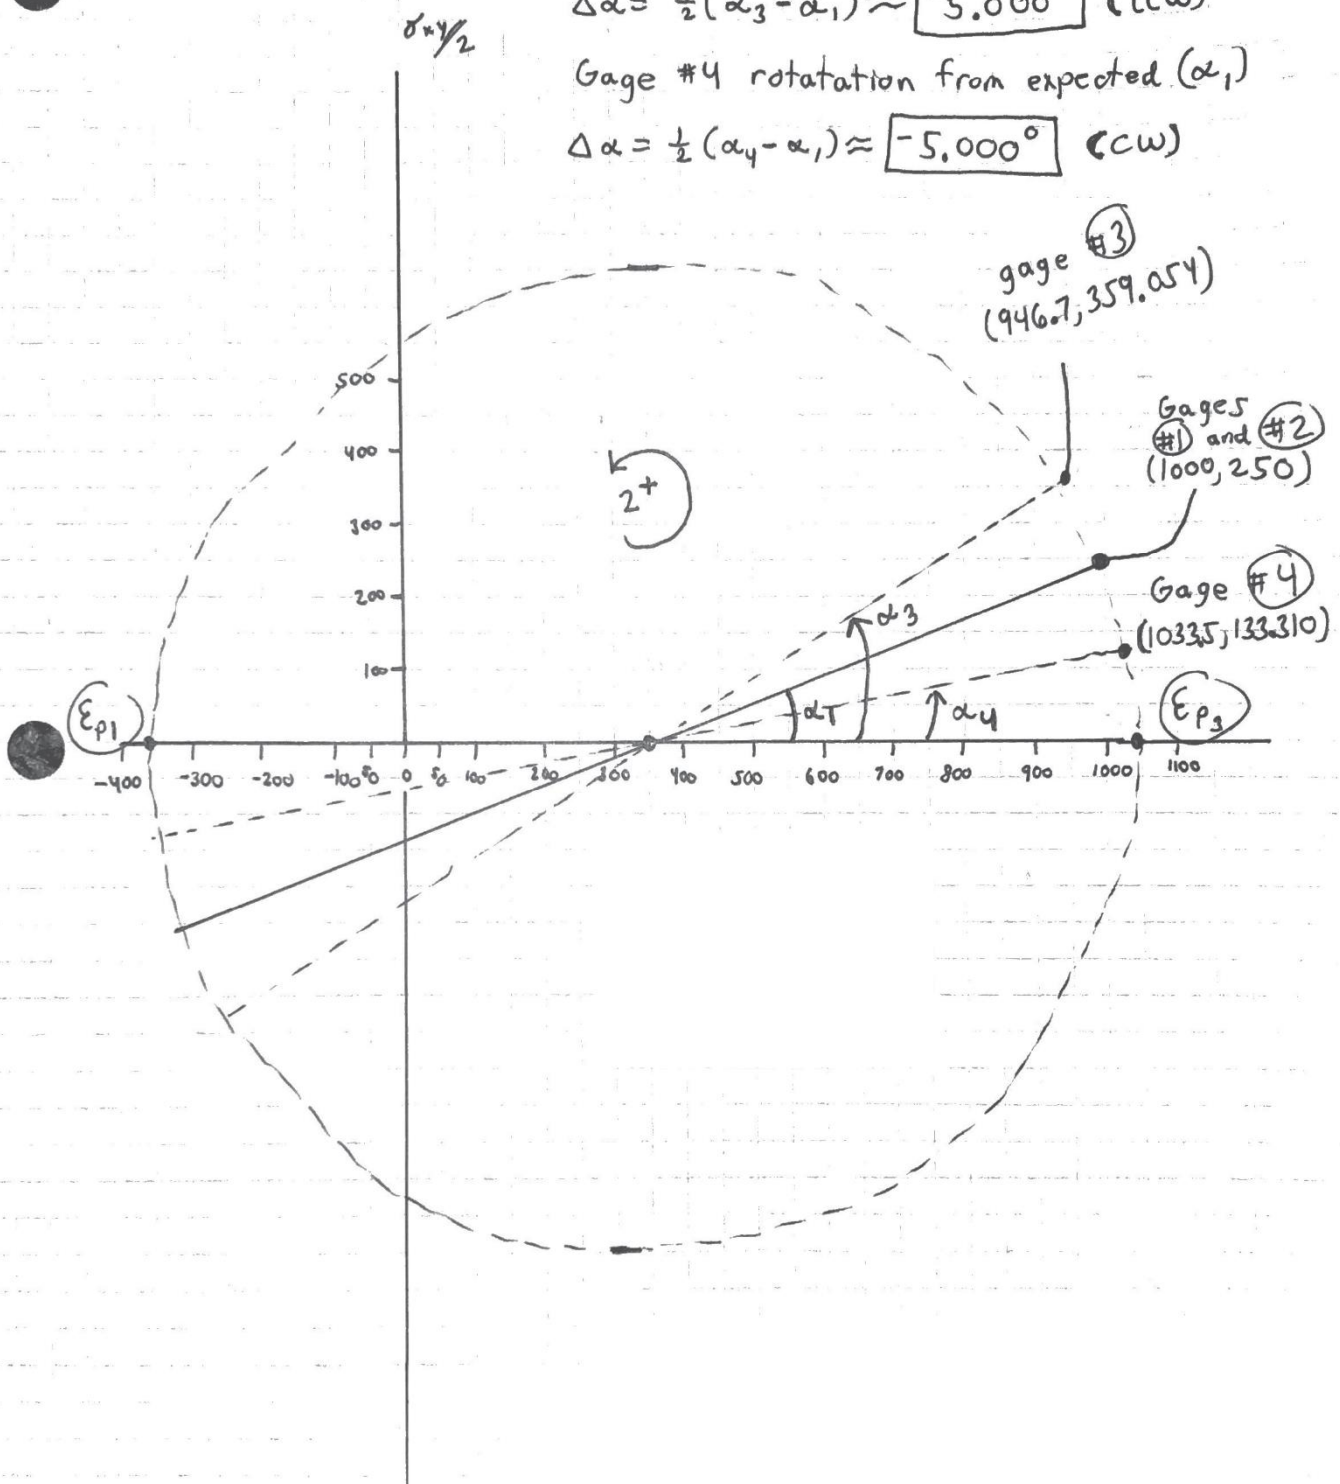 Δα = ½(α₃-α₁) ≈ 5.000 (CCW)
γxy/2
Gage #4 rotatation from expected (α₁)
Δα = ½(α₄-α₁) ≈ -5.000° (CW)
gage #3
(946.7, 359.054)
Gages
#1 and #2
(1000, 250)
500
400
300
200
100
2+
Gage #4
(1033.5, 133.310)
α₃
α₄
εp1
εp3
-400 -300 -200 -100 50 0 50 100 200 300 400 500 600 700 800 900 1000 1100